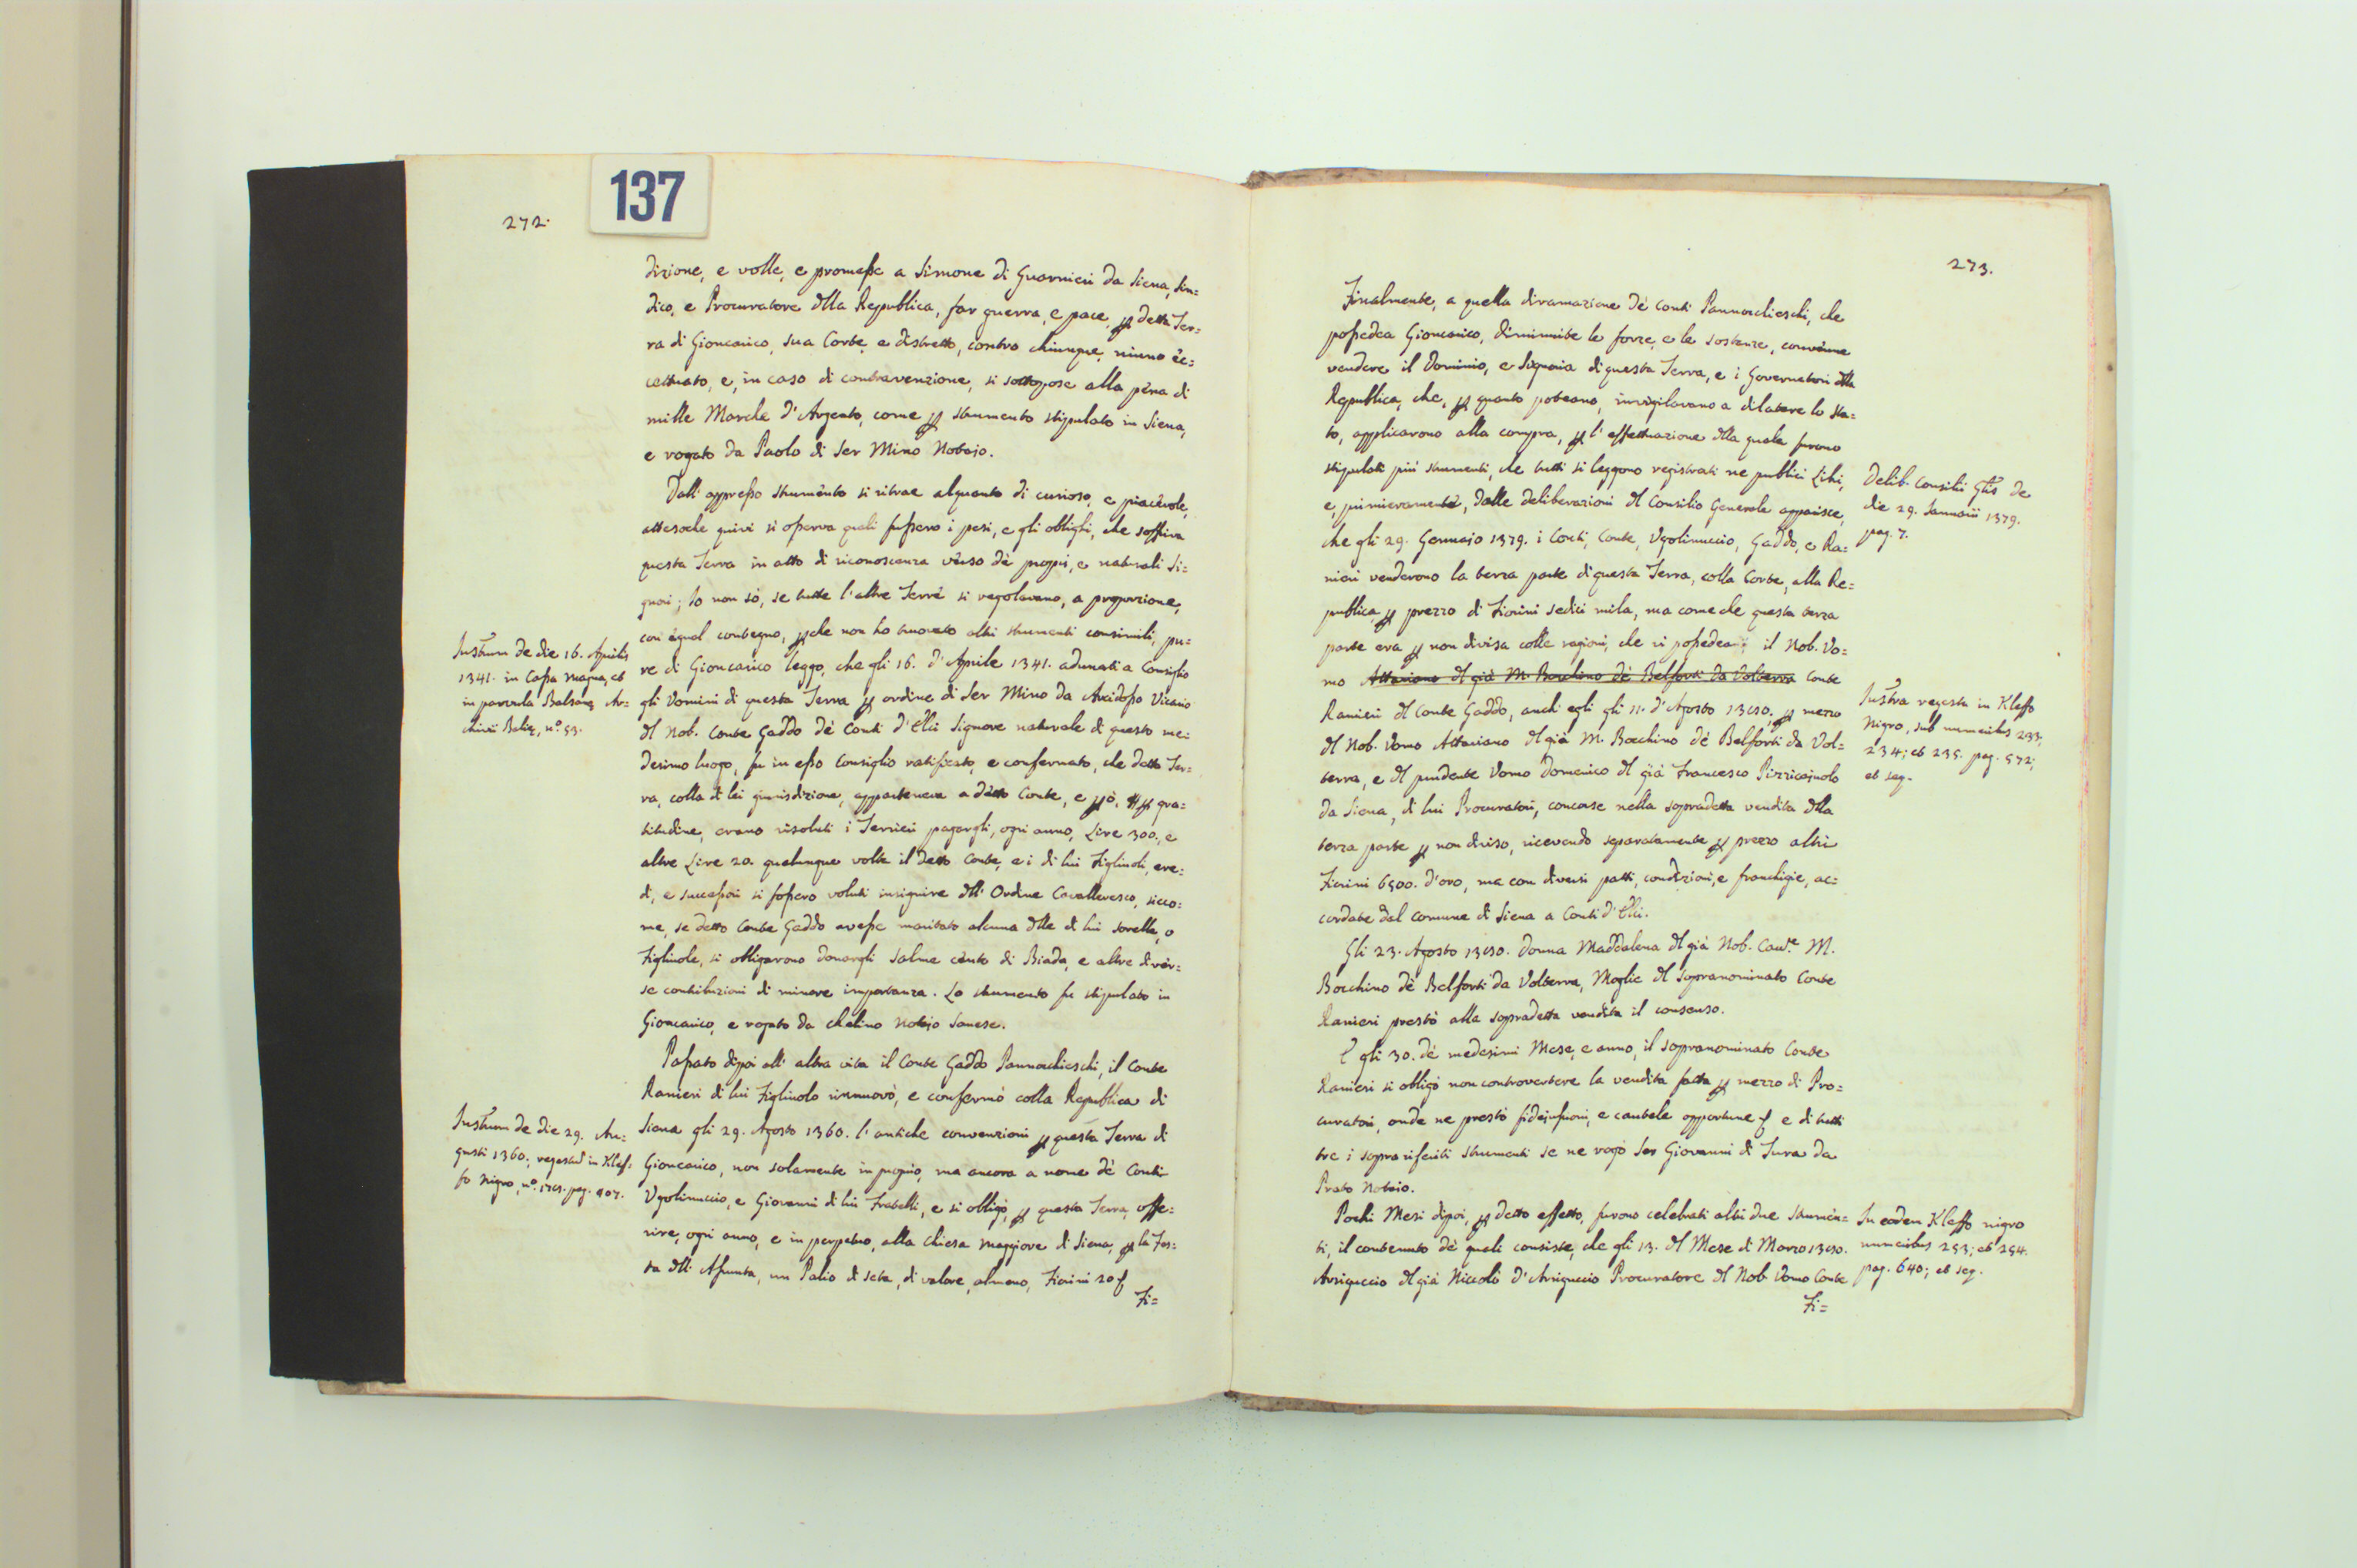 137
272.
dizione, e volle, e promesse a Simone di Guarnieri da Siena, Sin=
dico, e Procuratore dlla Republica, far guerra, e pace, p detta Ter=
ra di Gioncarico, sua Corte, e distretto, contro chiunque, niuno éc=
cettuato, e, in caso di contravenzione, si sottopose alla péna di
mille Marche d'Argento, come p strumento stipulato in Siena,
e rogato da Paolo di Ser Mino Notaio.
Dall'appresso struménto si ritrae alquanto di curioso, e piacévole,
attesoche quivi si osserva quali fussero i pesi, e gli oblighi, che soffriva
questa Terra in atto di riconoscenza vérso dé proprii, e naturali Si=
gnori; Io non só, se tutte l'altre Terré si regolavano, a proporzione,
con égual contegno, pche non ho trovato altri strumenti consimili, pu=
re di Gioncarico leggo, che gli 16. d'Aprile 1341. adunati a Consiglio
gli Uomini di questa Terra p ordine di Ser Mino da Arcidosso Vicario
dl Nob. Conte Gaddo dé Conti d'Elci Signore naturale di questo me=
desimo luogo, fu in esso Consiglio ratificato, e confermato, che detta Ter=
ra, colla di lei giurisdizione, apparteneva a détto Conte, e pó, p gra=
titudine, erano risoluti i Terrieri pagargli, ogni anno, Lire 300., e
altre Lire 20. qualunque volta il detto Conte, e i di lui Figliuoli, ere=
di, e successori si fossero voluti insignire dll'Ordine Cavalleresco, sicco=
me, se detto Conte Gaddo avesse maritato alcuna dlle di lui sorelle, o
Figliuole, si obligarono donargli Salme cénto di Biada, e altre divér=
se contribuzioni di minore importanza. Lo strumento fu stipulato in
Gioncarico, e rogato da Chelino Notaio Sanese.
Passato dipoi all'altra vita il Conte Gaddo Pannocchieschi, il Conte
Ranieri di lui Figliuolo rinnuovó, e confermó colla Republica di
Siena gli 29. Agosto 1360. l'antiche convenzioni p questa Terra di
Gioncarico, non solamente in proprio, ma ancora a nome dé Conti
Ugolinuccio, e Giovanni di lui Fratelli, e si obligó, p questa Terra, offe=
rire, ogni anno, e in perpetuo, alla Chiesa Maggiore di Siena, p la Fes=
ta dll'Assunta, un Palio di seta, di valore, almeno, Fiorini 20
Fi=
Instrum de die 16. Aprilis
1341. in Capsa magna, et
in parvula Balzanę Ar=
chivii Balię, nº. 53.
Instrum de die 29. Au=
gusti 1360; regestũ in Klef=
fo Nigro, nº. pag. 407.
273.
Finalmente, a quella diramazione dé Conti Pannocchieschi, che
possedea Gioncarico, diminuite le forze, e le sostanze, convénne
vendere il Dominio, e Signoria di questa Terra, e i Governatori dlla
Republica, che, p quanto poteano, invigilavano a dilatare lo Sta=
to, applicarono alla compra, p l'effettuazione dlla quale furono
stipulati piú strumenti, che tutti si leggono registrati ne publici Libri,
e, primieramenté, dalle deliberazioni dl Consilio Generale apparisce,
che gli 29. Gennaio 1379. i Conti, Conte, Ugolinuccio, Gaddo, e Ra=
nieri venderono la terza parte di questa Terra, colla Corte, alla Re=
publica, p prezzo di Fiorini sedici mila, ma come che questa terza
parte era p non divisa colle ragioni, che vi possedea il Nob. Uo=
mo Attaviano dl già M. Bocchino dé Belforti da Volterra Conte
Ranieri dl Conte Gaddo, anch'egli gli 11. d'Agosto 1380. p mezzo
dl Nob. Uomo Attaviano dl già M. Bocchino dé Belforti da Vol=
terra, e dl prudente Uomo Domenico dl già Francesco Pizzicajuolo
da Siena, di lui Procuratori, concorse nella sopradetta vendita dlla
terza parte p non diviso, ricevendo separatamente p prezzo altri
Fiorini 6500. d'oro, ma con diversi patti, condizioni, e franchigie, ac=
cordate dal Comune di Siena a Conti d'Elci.
Gli 23. Agosto 1380. Donna Maddalena dl già Nob. Cav.e M.
Bocchino dé Belforti da Volterra, Moglie dl sopranominato Conte
Ranieri prestó alla sopradetta vendita il consenso.
E gli 30. dé medesimi Mese, e anno, il sopranominato Conte
Ranieri si obligó non controvertere la vendita fatta p mezzo di Pro=
curatori, onde ne prestó fidejussori, e cautele opportune e di tutti
tre i sopra riferiti strumenti se ne rogó Ser Giovanni di Tura da
Prato Notaio.
Pochi Mesi dipoi, p detto effetto, furono celebrati altri due Strumén=
ti, il contenuto dé quali consiste, che gli 13. dl Mese di Marzo 1380.
Arriguccio dl già Niccoló d'Arriguccio Procuratore dl Nob. Uomo Conte
Fi=
Delib. Consilii Glis de
die 29. Januarii 1379.
pag. 7.
Instra regesta in Kleffo
Nigro, sub numeribus 233;
234; et 235. pag. 572;
et seq.
In eodem Kleffo nigro
numeribus 253; et 254.
pag. 640; et seq.